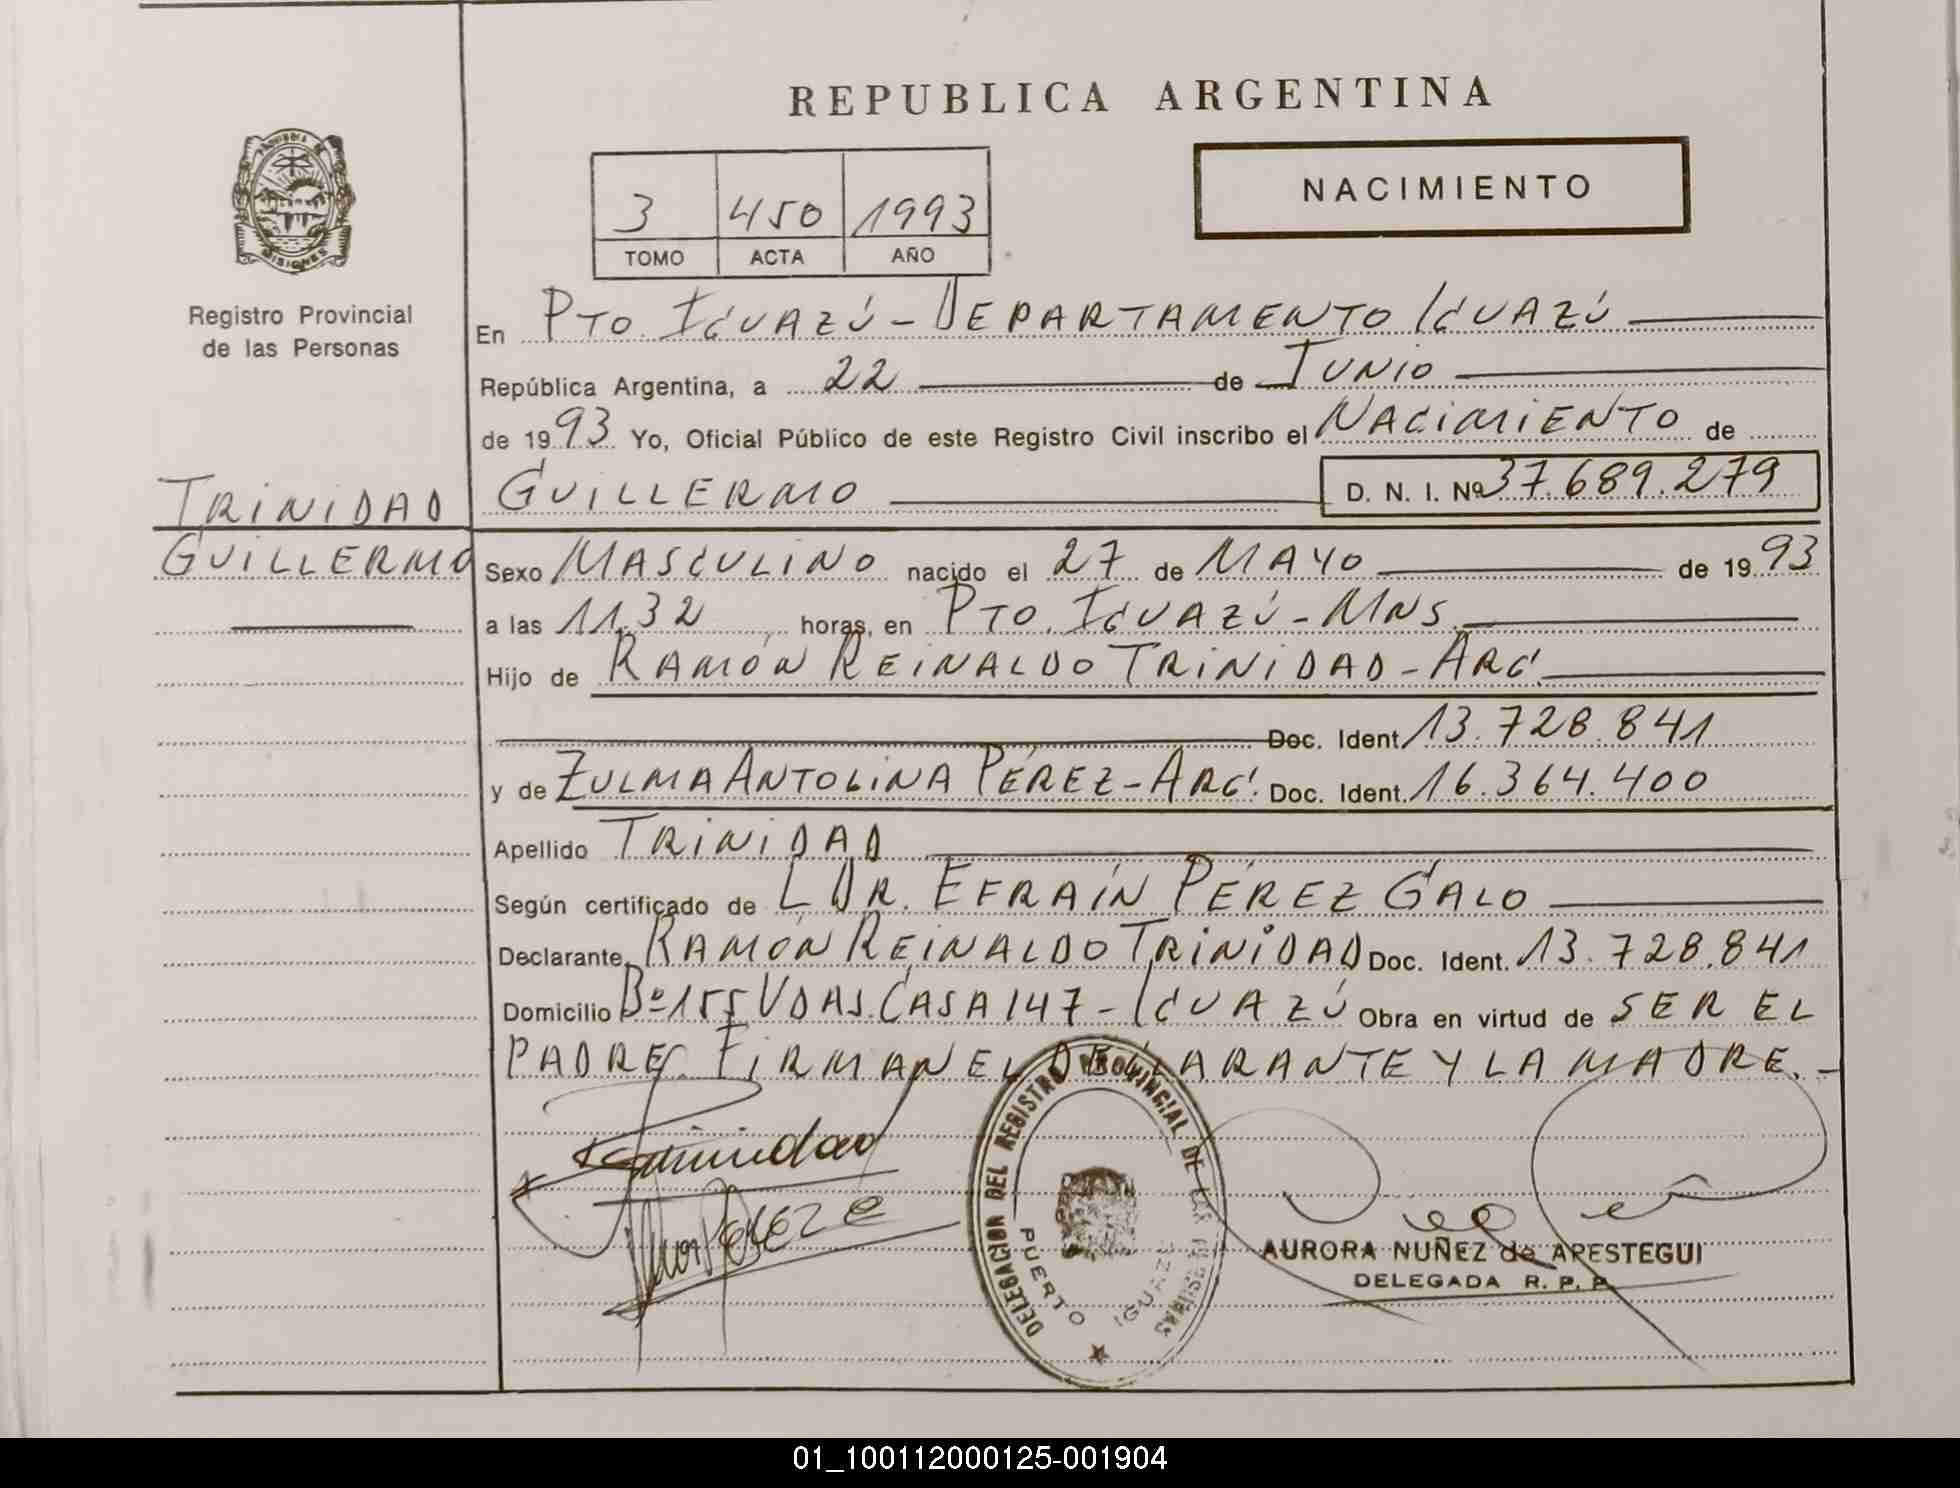 REPUBLICA ARGENTINA
NACIMIENTO
3 450 1993
TOMO ACTA AÑO
MISIONES
Registro Provincial
de las Personas
TRINIDAD
GUILLERMO
En PTO. IGUAZÚ - DEPARTAMENTO IGUAZÚ
República Argentina, a 22 de JUNIO
de 1993 Yo, Oficial Público de este Registro Civil inscribo el NACIMIENTO de
GUILLERMO D. N. I. Nº 37.689.279
Sexo MASCULINO nacido el 27 de MAYO de 1993
a las 11.32 horas, en PTO. IGUAZÚ - MNS.
Hijo de RAMÓN REINALDO TRINIDAD - ARG.
Doc. Ident. 13.728.841
y de ZULMA ANTOLINA PÉREZ - ARG. Doc. Ident. 16.364.400
Apellido TRINIDAD
Según certificado de L DR. EFRAÍN PÉREZ GALO
Declarante RAMÓN REINALDO TRINIDAD Doc. Ident. 13.728.841
Domicilio Bº 155 VDAS. CASA 147 - IGUAZÚ Obra en virtud de SER EL
PADRE. FIRMAN EL DECLARANTE Y LA MADRE. -
Trinidad
DELEGACION DEL REGISTRO PROVINCIAL DE LAS PERSONAS
PUERTO IGUAZU
AURORA NUÑEZ de APESTEGUI
DELEGADA R. P. P.
01_100112000125-001904